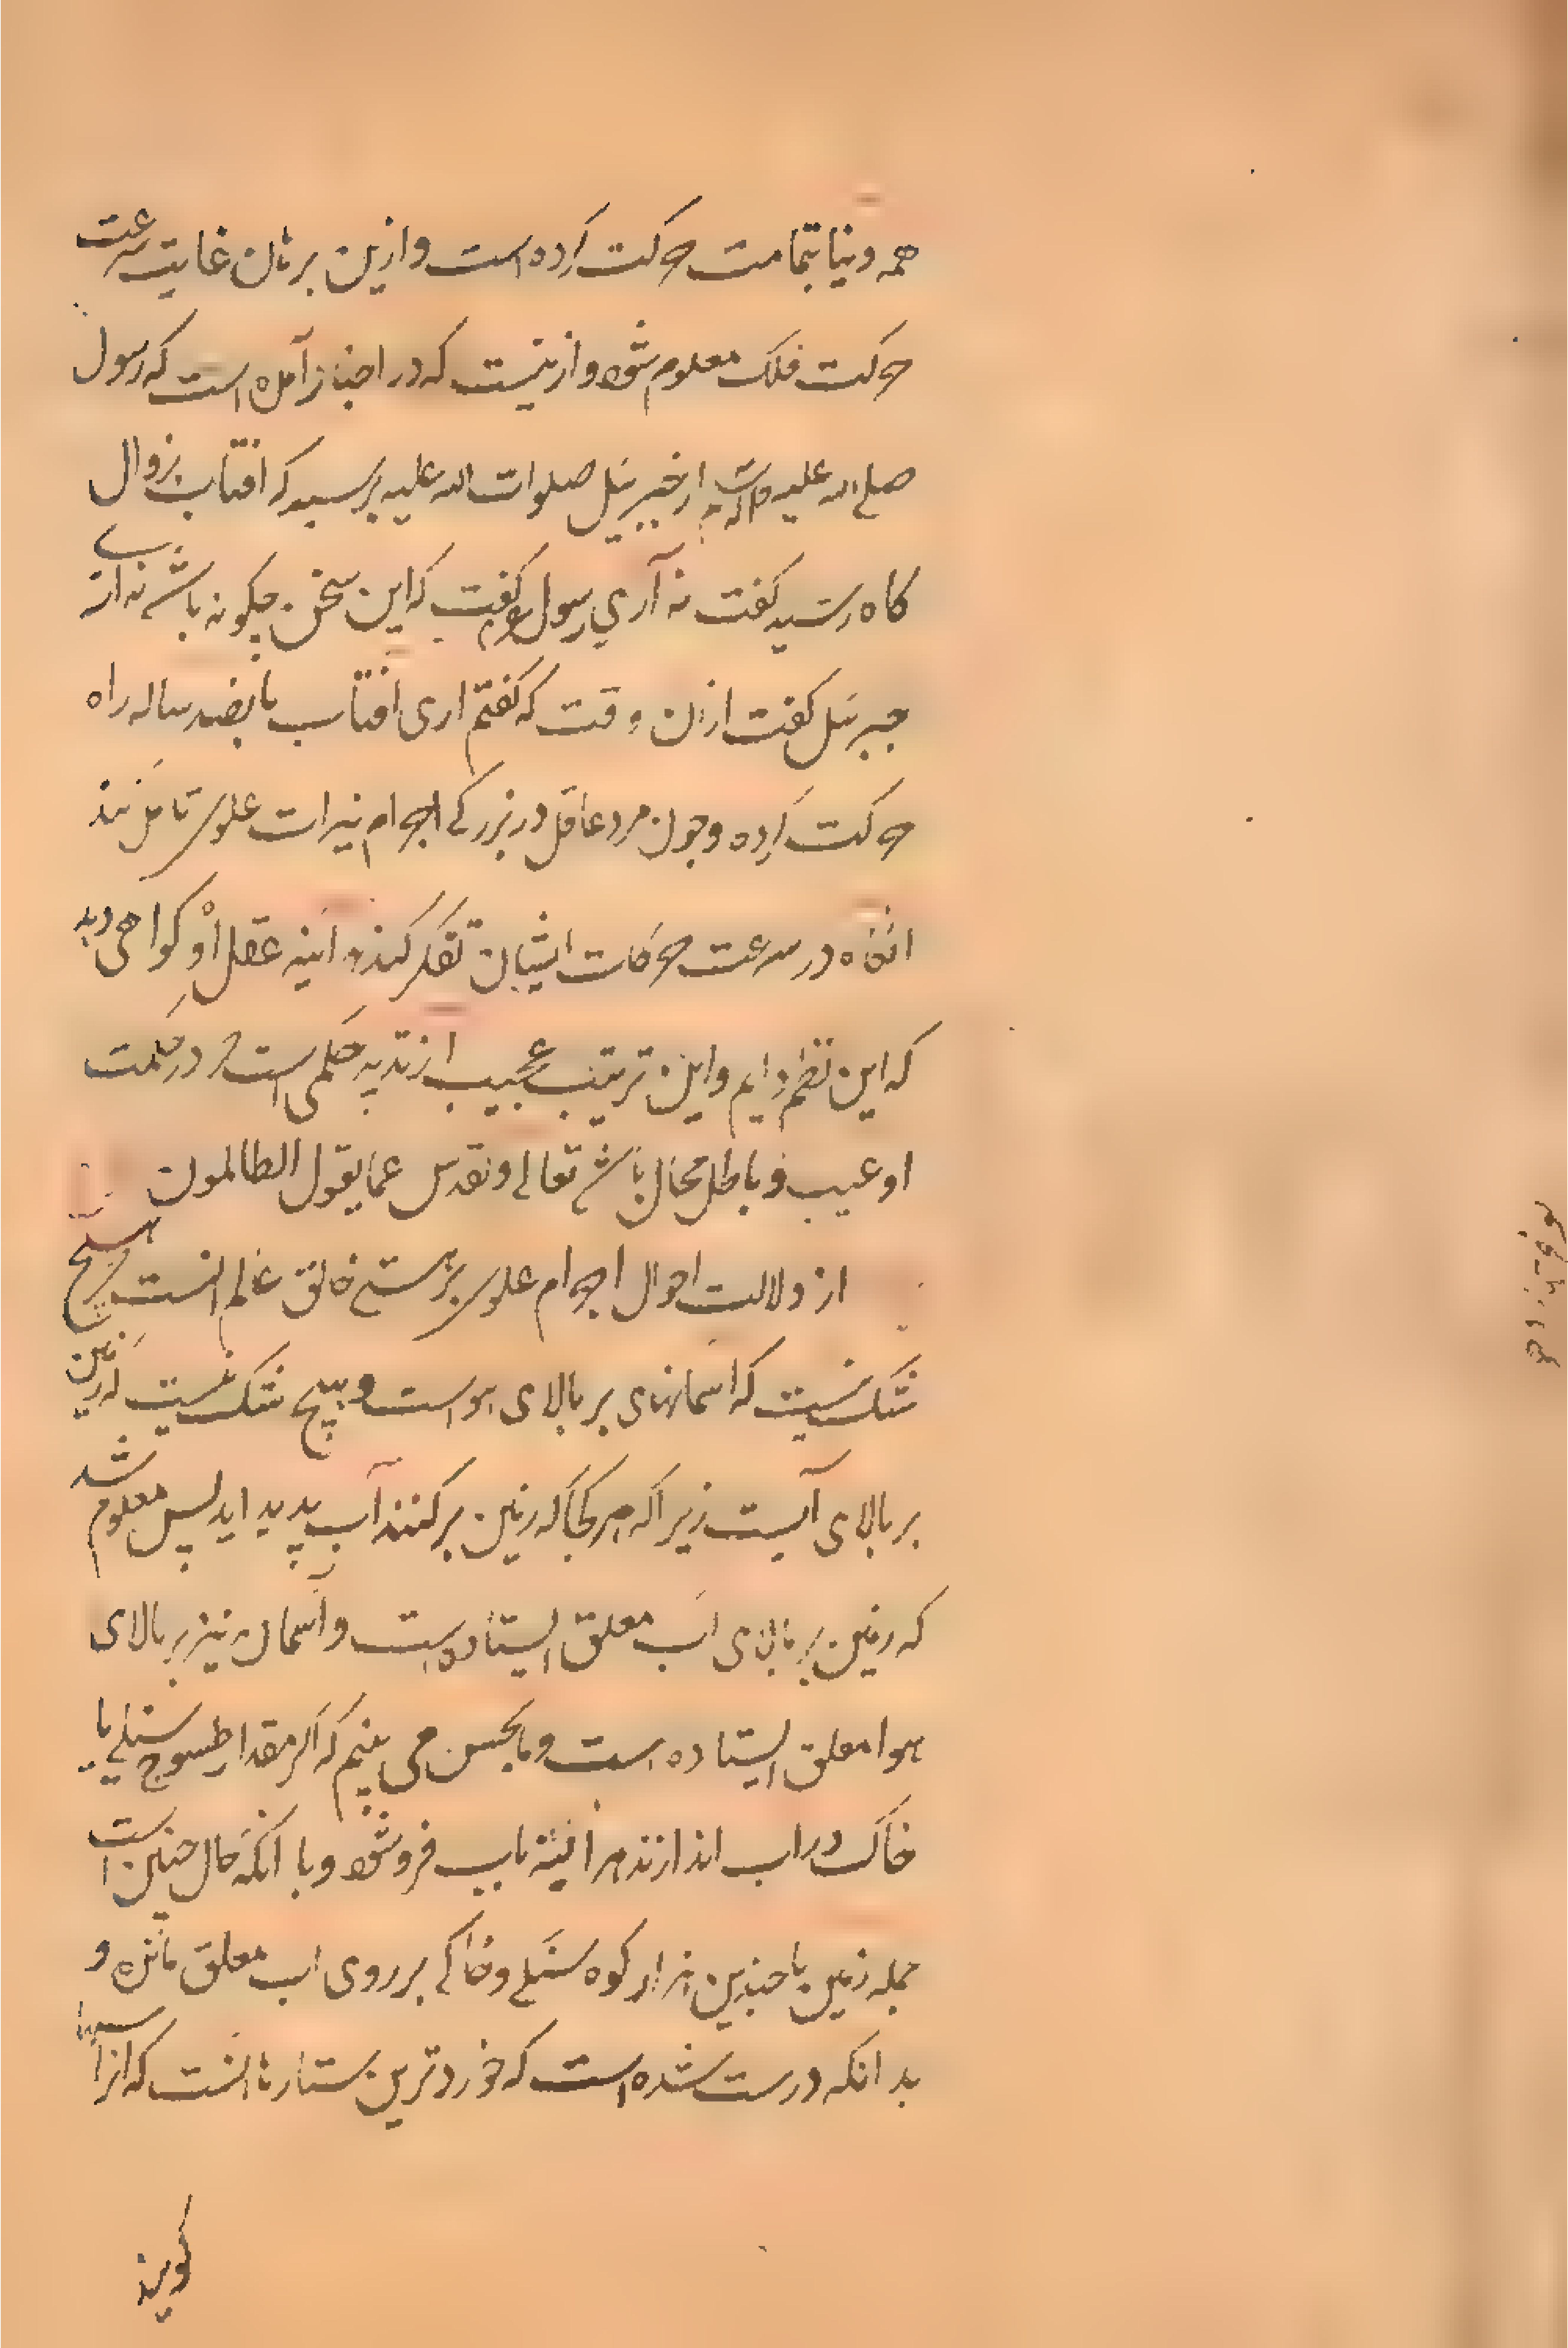 همه دنیا بتمامت حرکت کرده است وازین برهان غایت سرعت
حرکت فلک معلوم شود وازینست که در اخبار آمده است که رسول
صلی الله علیه وآله از جبرئیل صلوات الله علیه پرسید که افتاب بزوال
کاه رسید کفت نه آری رسول کفت که این سخن چکونه باشد نه اری
جبرئیل کفت ازان وقت که کفتم اری افتاب پانصد ساله راه
حرکت کرده وچون مرد عاقل در بزرکی اجرام نیرات علوی تامل کند
انکاه در سرعت حرکات ایشان تفکر کند اینه عقل او کواهی دهد
که این نظم دایم واین ترتیب عجیب از تدبیر حکیمی است که در حکمت
او عیب و باطل محال باشد تعالی وتقدس عما یقول الظالمون
از دلالت احوال اجرام علوی بر هستی خالق عالم انست که هیچ
شک نیست که اسمانهای بر بالای هواست وهیچ شک نیست که زمین
بر بالای آبست زیرا که هر کجا که زمین بر کنند آب پدید اید پس معلوم شد
که زمین بر بالای اب معلق ایستاده است و آسمان نیز بر بالای
هوا معلق ایستاده است وما بحس می بینیم که اکر مقدار طسوج سنکی یا
خاک در اب اندازند هراینه باب فرو شود وبا انکه حال چنین است
جمله زمین با چندین هزار کوه سنکی وخاکی بر روی اب معلق مانده و
بدانکه درست شده است که خوردترین ستارها انست که انرا سها
کویند